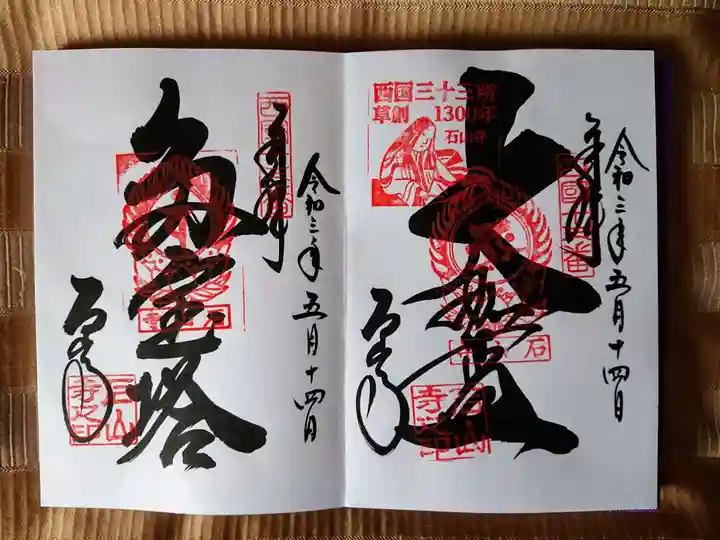 西国三十三所
草創 1300年
石山寺
奉拝
令和三年五月十四日
大伽藍
石山寺
石山寺之印
奉拝
令和三年五月十四日
多宝塔
石山寺
石山寺之印